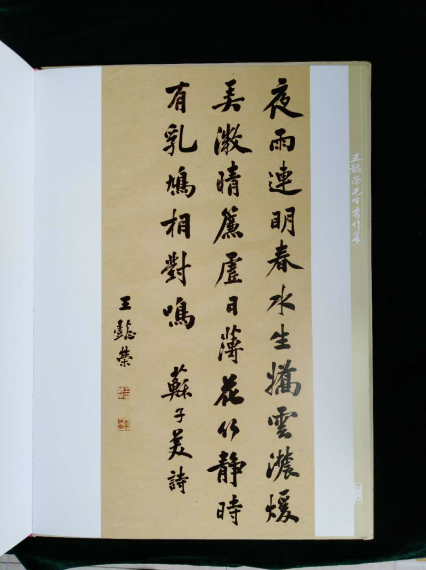 夜雨連明春水生嬌雲濃煖
弄微晴簾虛日薄花竹静時
有乳鳩相對鳴 蘇子美詩
王懿榮
王懿榮先生書作集